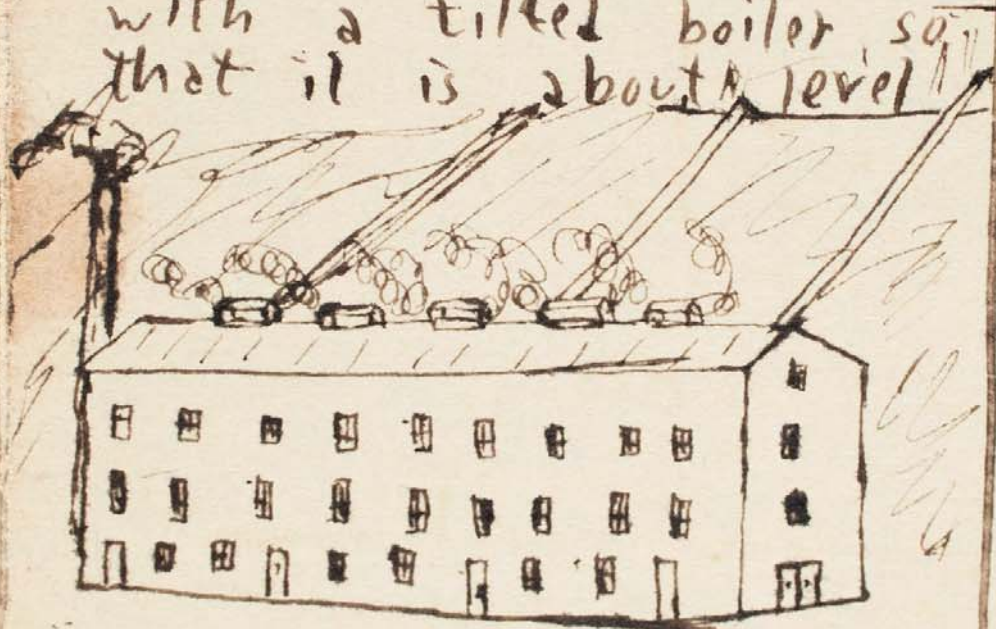 with a tilted boiler so
that it is about level